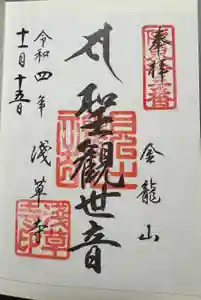 奉拝
金龍山
聖観世音
浅草寺
令和四年
十一月十五日